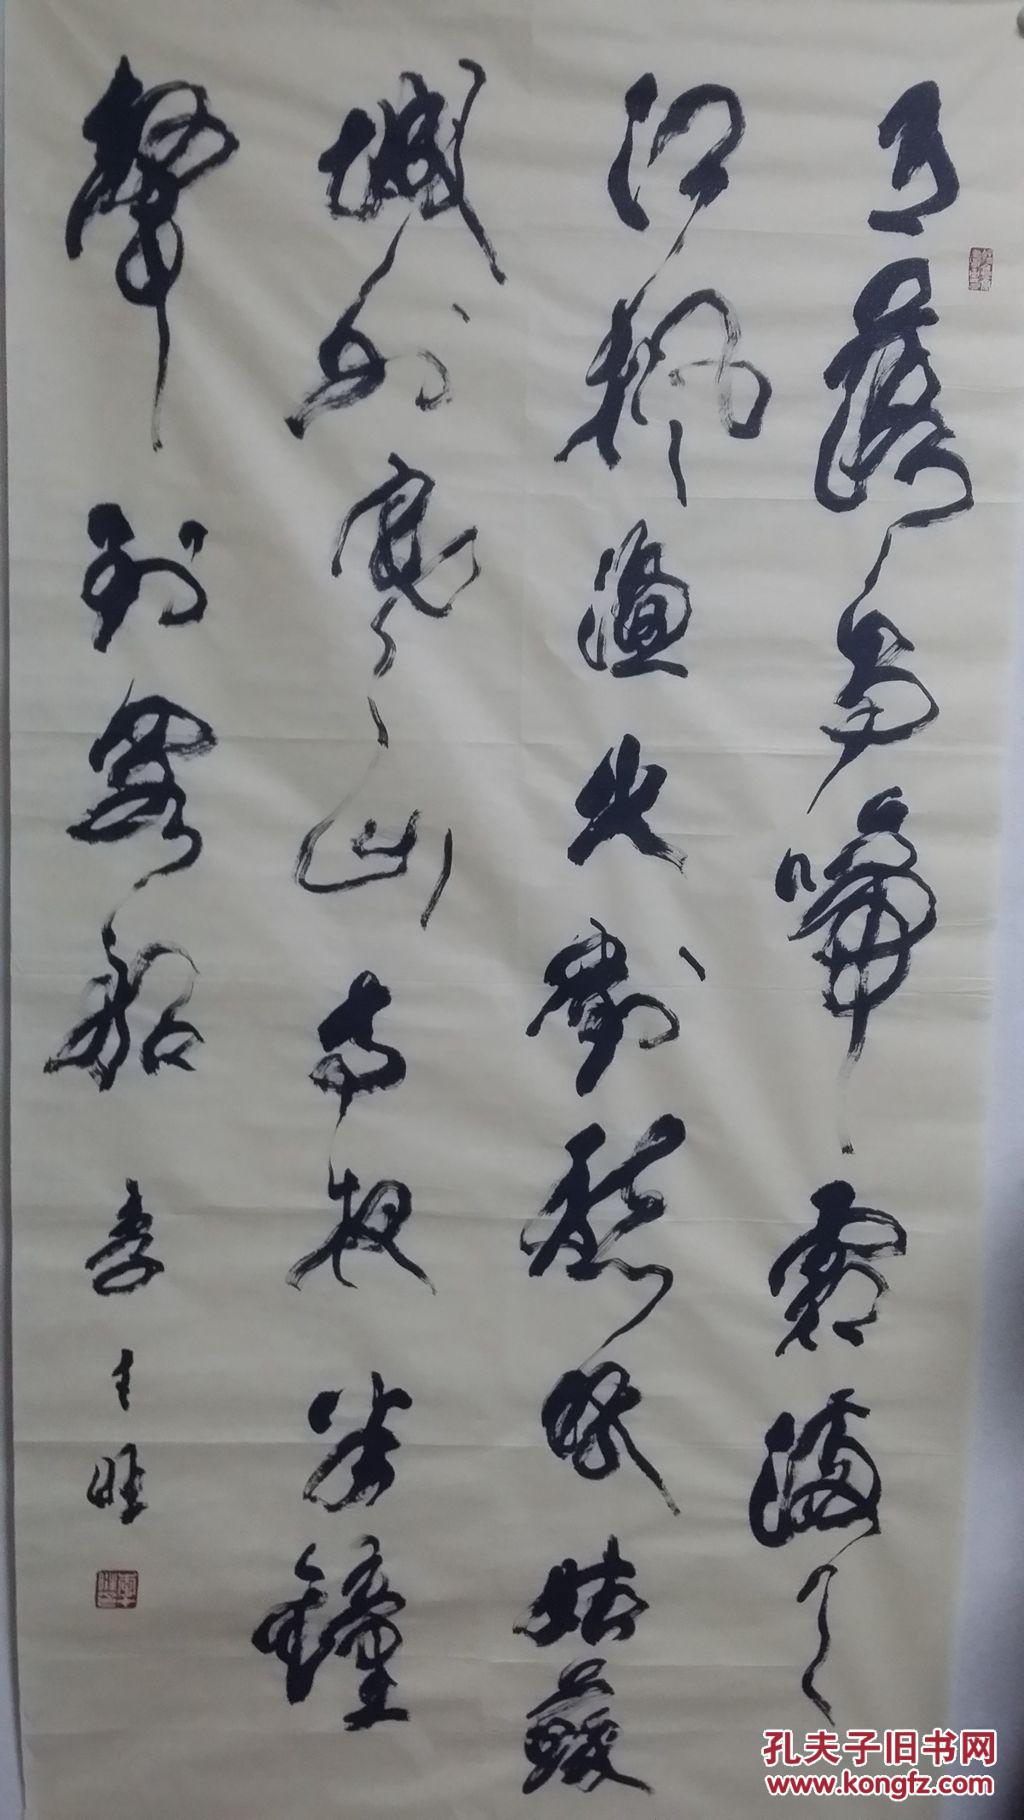 月落烏啼霜滿天
江楓漁火對愁眠姑蘇
城外寒山寺夜半鐘
聲到客船
李士旺
孔夫子旧书网
www.kongfz.com